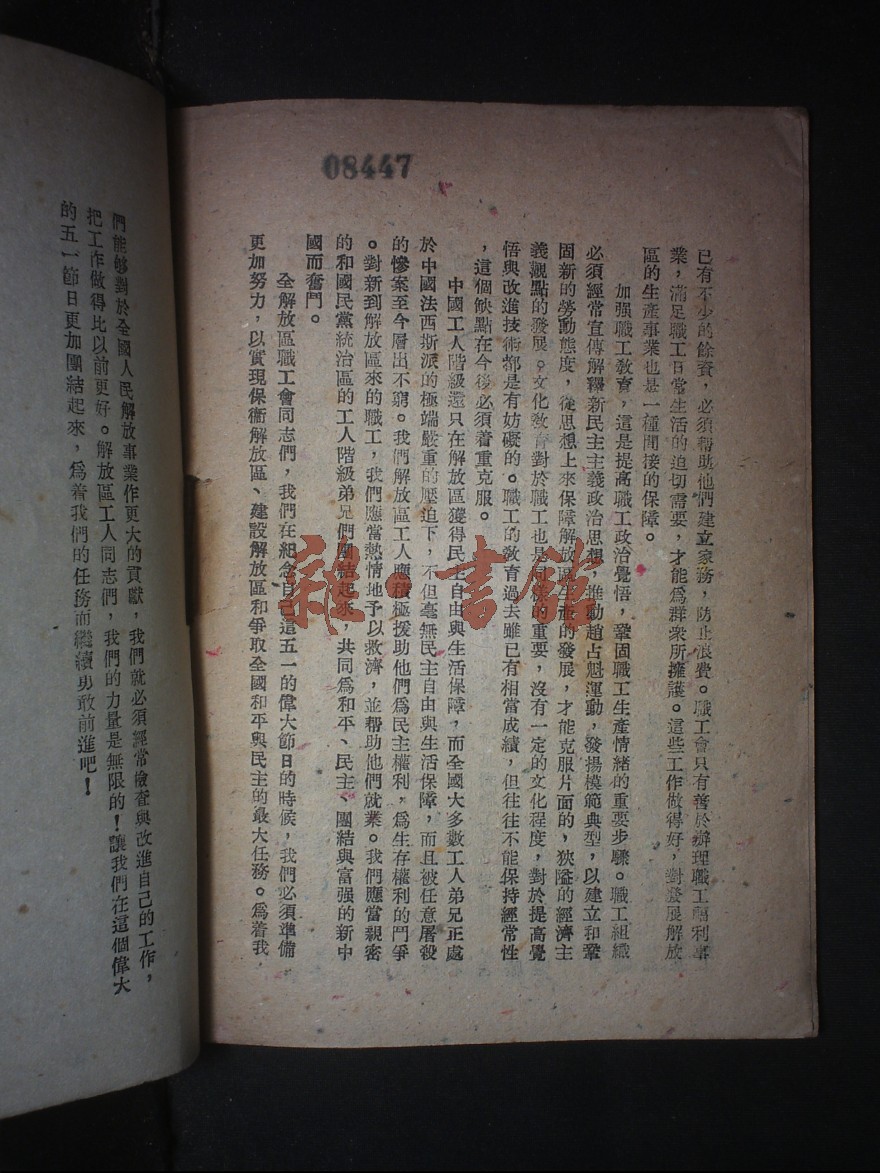 08447
已有不少的餘資，必須帮助他們建立家務，防止浪費。職工會只有善於辦理職工福利事
業，滿足職工日常生活的迫切需要，才能爲群衆所擁護。這些工作做得好，對發展解放
區的生產事業也是一種間接的保障。
加强職工教育，這是提高職工政治覺悟，鞏固職工生產情緒的重要步驟。職工組織
必須經常宣傳解釋新民主主義政治思想，推動趙占魁運動，發揚模範典型，以建立和鞏
固新的勞動態度，從思想上來保障解放區生產的發展，才能克服片面的，狹隘的經濟主
義觀點的發展。文化教育對於職工也是同樣的重要，沒有一定的文化程度，對於提高覺
悟與改進技術都是有妨礙的。職工的教育過去雖已有相當成績，但往往不能保持經常性
，這個缺點在今後必須着重克服。
中國工人階級還只在解放區獲得民主自由與生活保障，而全國大多數工人弟兄正處
於中國法西斯派的極端嚴重的壓迫下，不但毫無民主自由與生活保障，而且被任意屠殺
的慘案至今層出不窮。我們解放區工人應積極援助他們爲民主權利，爲生存權利的鬥爭
。對新到解放區來的職工，我們應當熱情地予以救濟，並帮助他們就業。我們應當親密
的和國民黨統治區的工人階級弟兄們團結起來，共同爲和平、民主、團結與富强的新中
國而奮鬥。
全解放區職工會同志們，我們在紀念自己這五一的偉大節日的時候，我們必須準備
更加努力，以實現保衛解放區、建設解放區和爭取全國和平與民主的最大任務。爲着我
們能够對於全國人民解放事業作更大的貢獻，我們就必須經常檢查與改進自己的工作，
把工作做得比以前更好。解放區工人同志們，我們的力量是無限的！讓我們在這個偉大
的五一節日更加團結起來，爲着我們的任務而繼續勇敢前進吧！
雜·書館